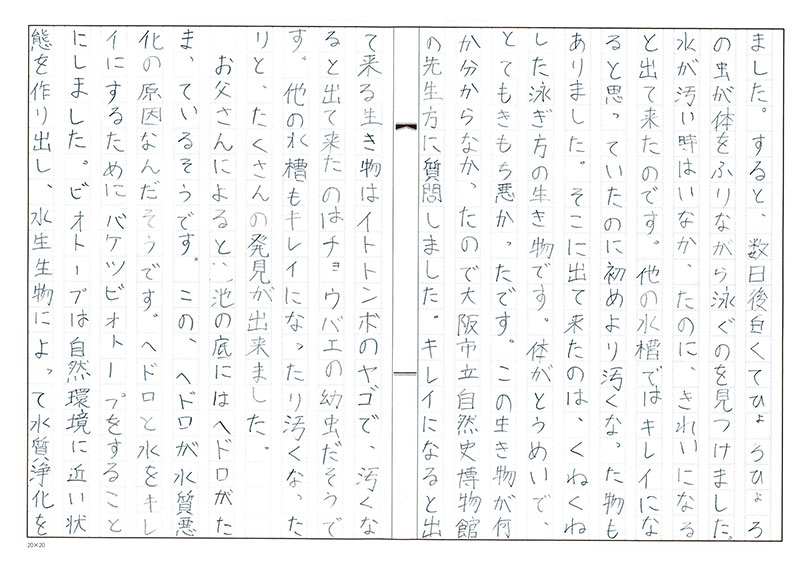 ました。すると、数日後白くてひょろひょろ
の虫が体をふりながら泳ぐのを見つけました。
水が汚い時はいなかったのに、きれいになる
と出て来たのです。他の水槽ではキレイにな
ると思っていたのに初めより汚くなった物も
ありました。そこに出て来たのは、くねくね
した泳ぎ方の生き物です。体がとうめいで、
とてもきもち悪かったです。この生き物が何
か分からなかったので大阪市立自然史博物館
の先生方に質問しました。キレイになると出
て来る生き物はイトトンボのヤゴで、汚くな
ると出て来たのはチョウバエの幼虫だそうで
す。他の水槽もキレイになったり汚くなった
りと、たくさんの発見が出来ました。
お父さんによると、池の底にはヘドロがた
まっているそうです。この、ヘドロが水質悪
化の原因なんだそうです。ヘドロと水をキレ
イにするためにバケツビオトープをすること
にしました。ビオトープは自然環境に近い状
態を作り出し、水生生物によって水質浄化を
20×20